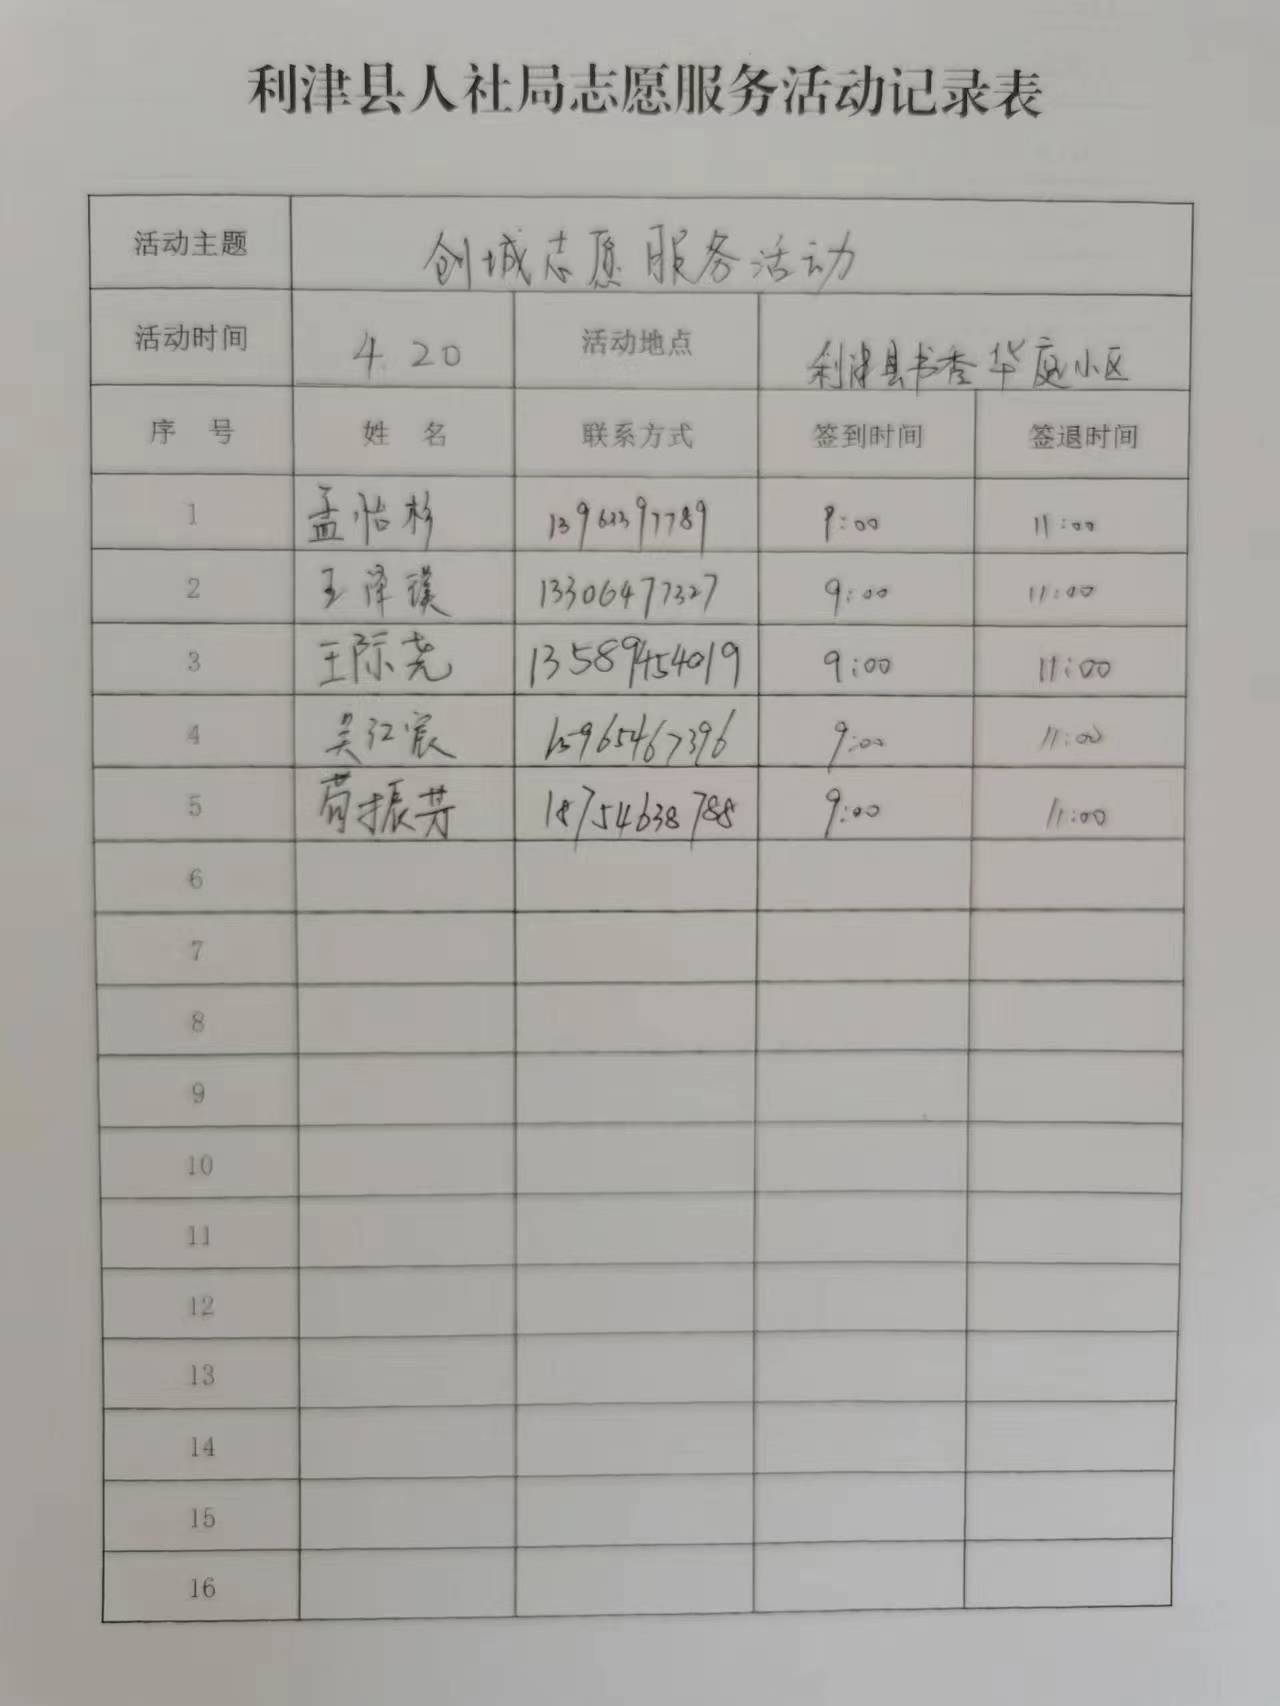 利津县人社局志愿服务活动记录表
活动主题 创城志愿服务活动
活动时间 4.20 活动地点 利津县书香华庭小区
序号 姓名 联系方式 签到时间 签退时间
1 孟怡杉 13963397789 9:00 11:00
2 王泽璞 13306477327 9:00 11:00
3 王际尧 13589454019 9:00 11:00
4 吴江宸 15965467396 9:00 11:00
5 苟振芳 18754638788 9:00 11:00
6
7
8
9
10
11
12
13
14
15
16